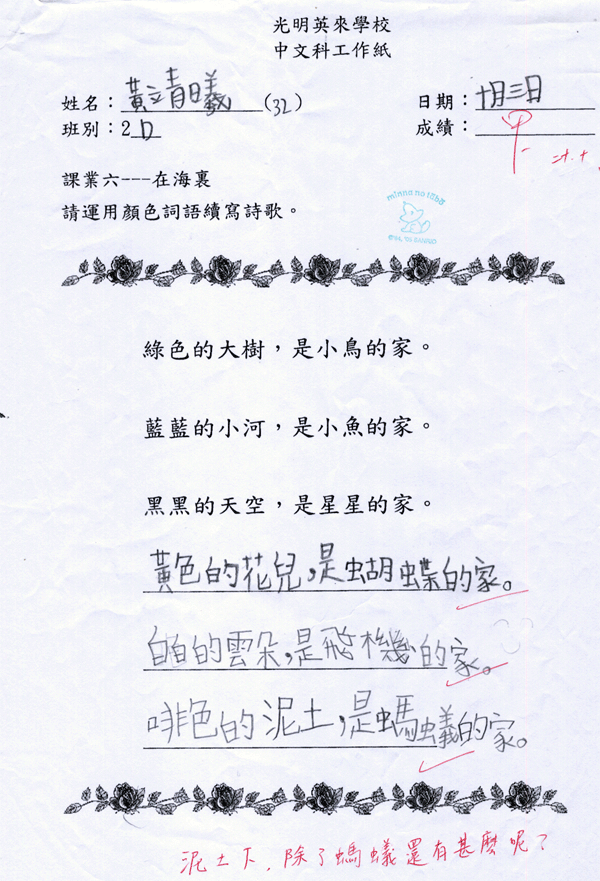 光明英來學校
中文科工作紙
姓名：黃立青曦(32) 日期：十月三日
班別：2D 成績：甲
課業六---在海裏
請運用顏色詞語續寫詩歌。
minna no tabo
綠色的大樹，是小鳥的家。
藍藍的小河，是小魚的家。
黑黑的天空，是星星的家。
黃色的花兒，是蝴蝶的家。
白白的雲朵，是飛機的家。
啡色的泥土，是螞蟻的家。
泥土下，除了螞蟻還有甚麼呢？